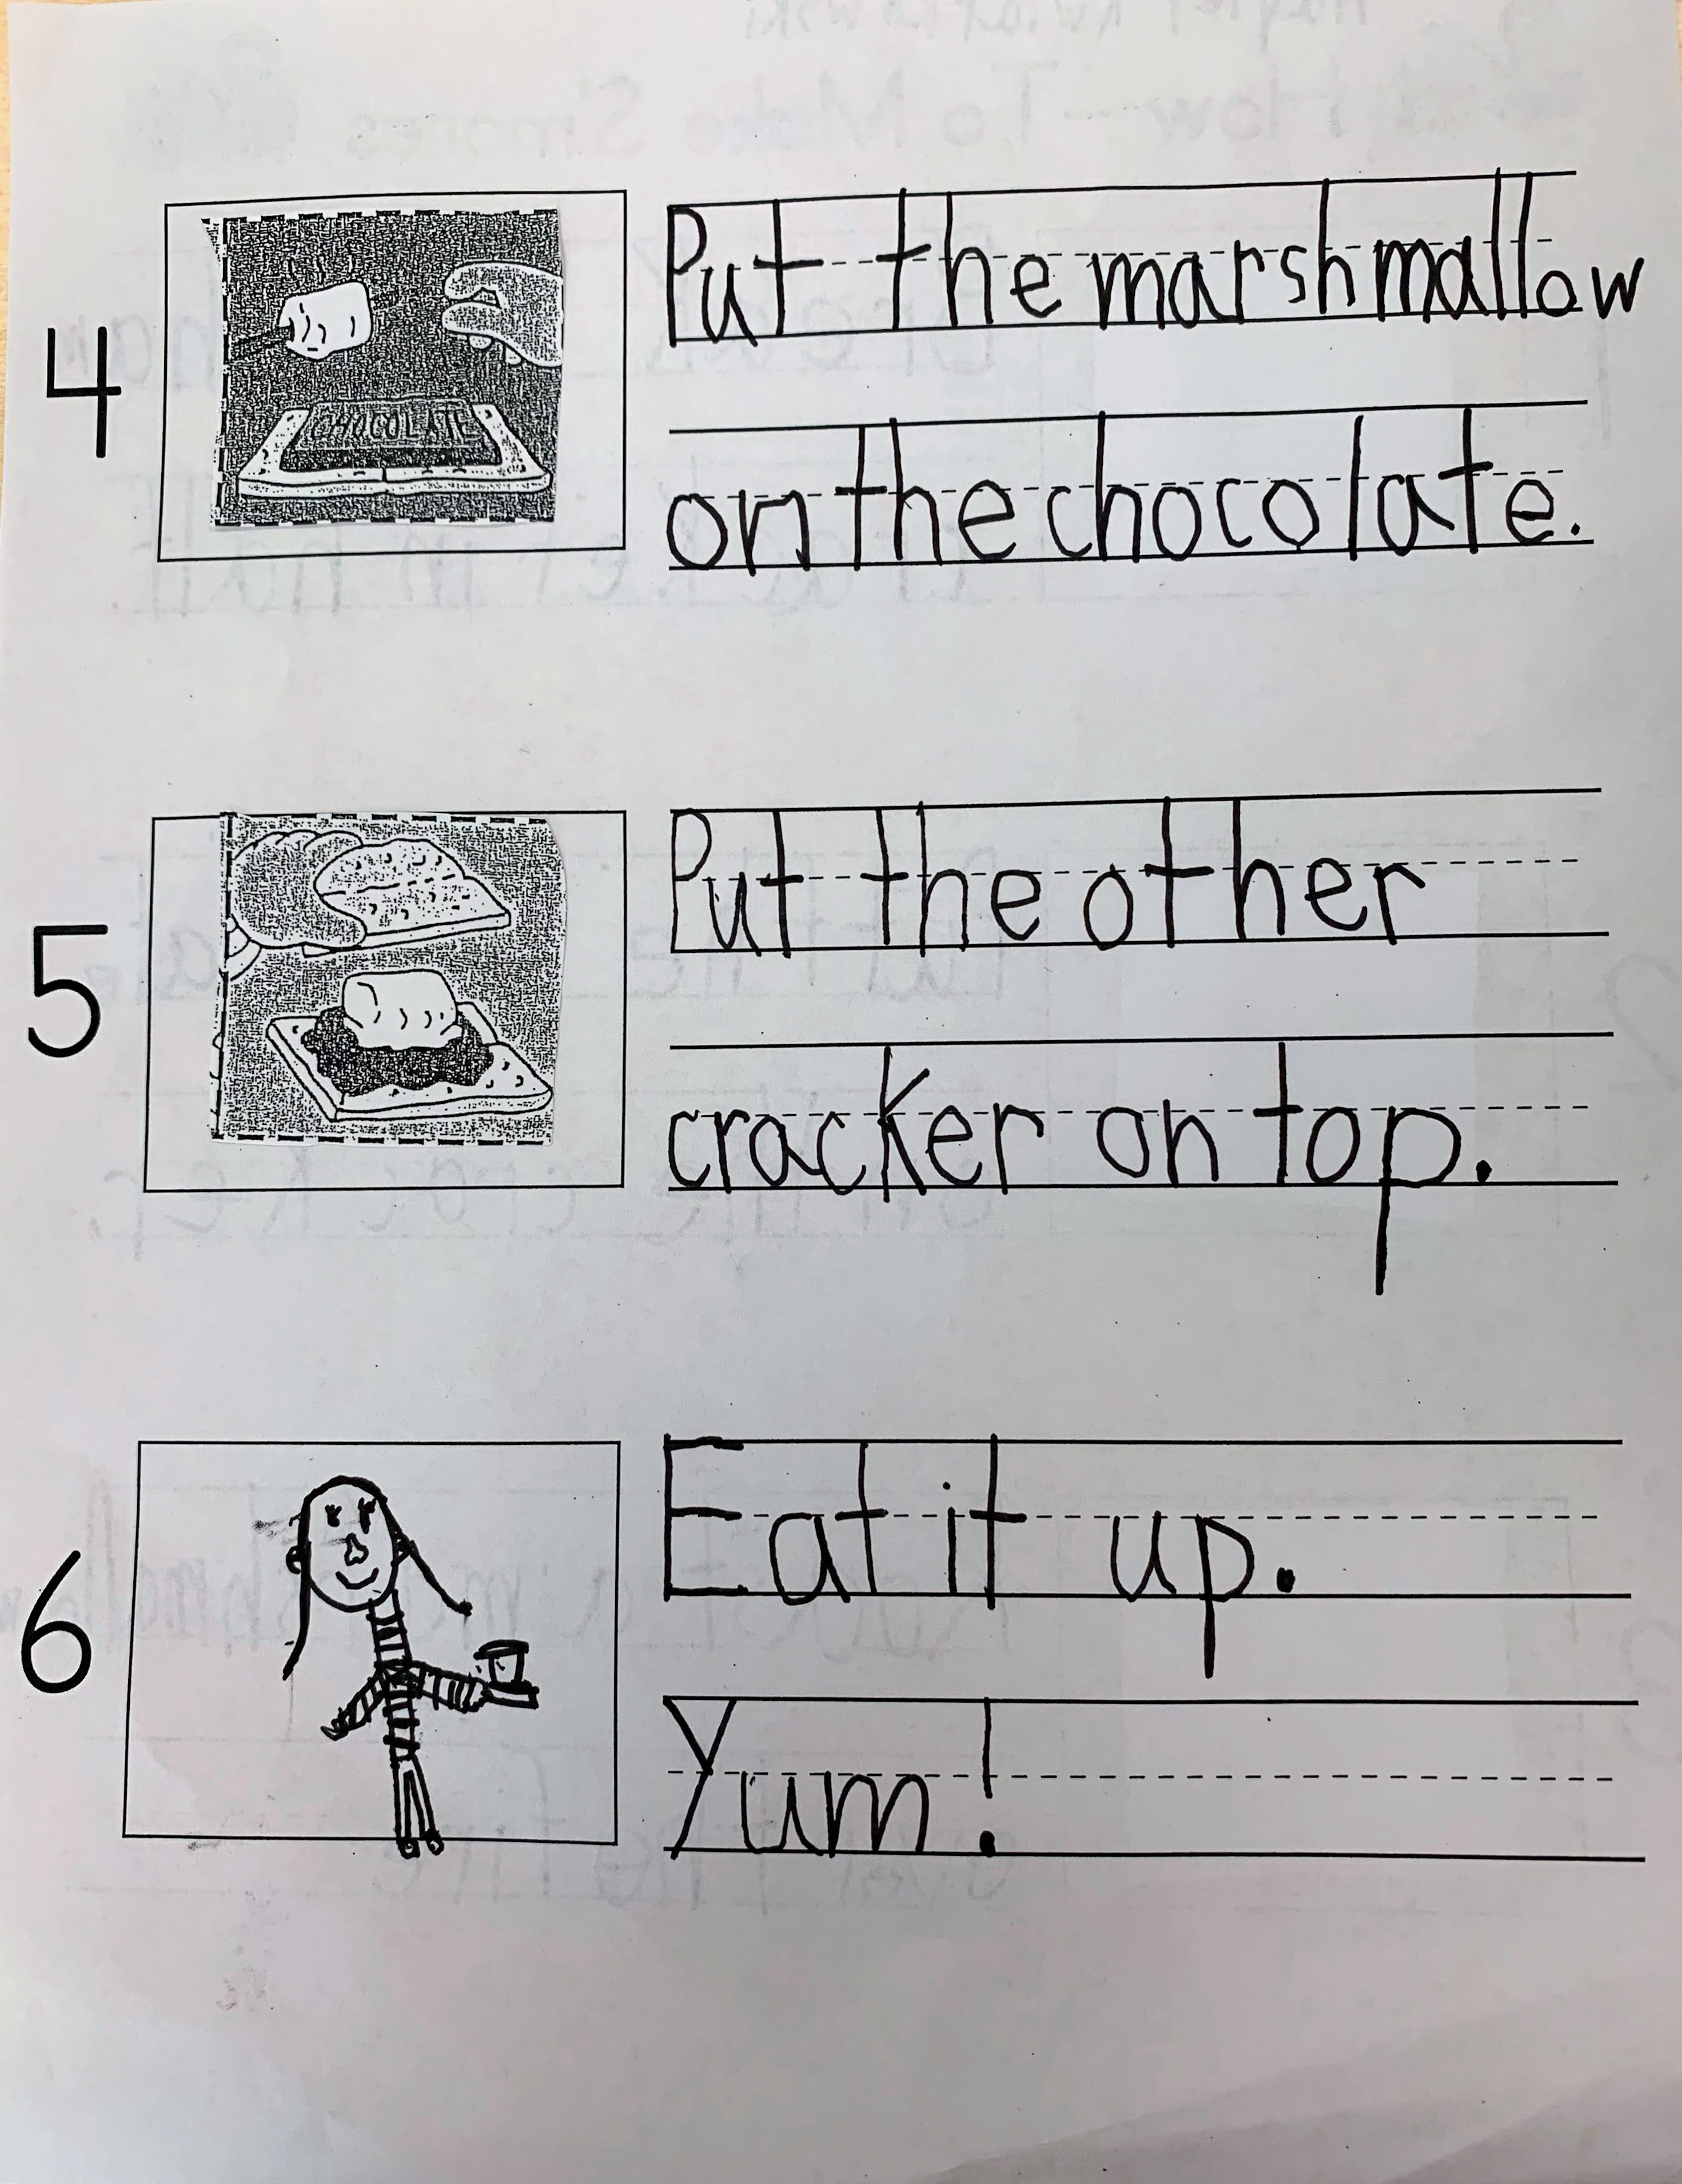 How-To Make S'mores
4
CHOCOLATE
Put the marshmallow
on the chocolate.
5
Put the other
cracker on top.
6
Eat it up.
Yum!